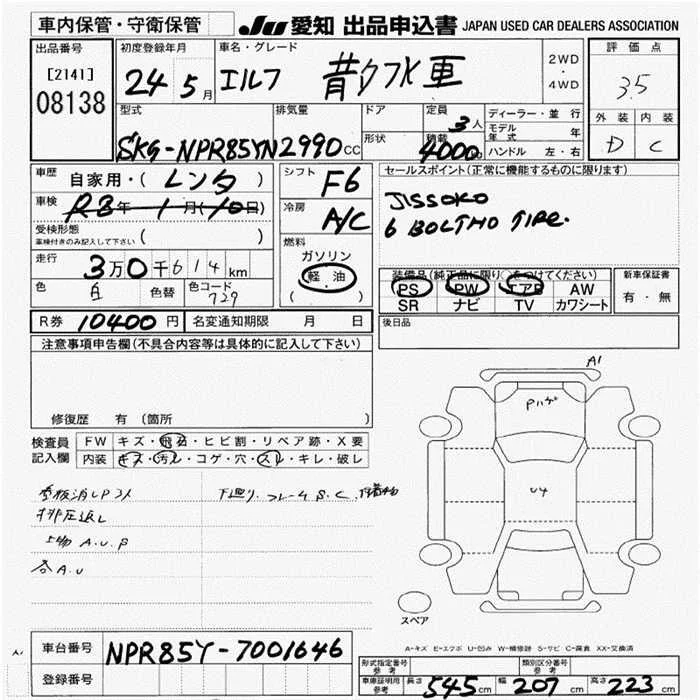 車内保管・守衛保管
JU 愛知 出品申込書 JAPAN USED CAR DEALERS ASSOCIATION
出品番号
[2141]
08138
初度登録年月
24 5月
車名・グレード
エルフ 散水車
2WD
・
4WD
評価点
3.5
外装 内装
D C
型式
SKG-NPR85YN
排気量
2990cc
ドア
形状
定員
3人
積載
4000kg
ディーラー・並行
モデル年式 年
ハンドル 左・右
車歴
自家用・(レンタ)
車検
R3年 1月(10日)
受検形態
車検付きのみ記入して下さい ( )
走行
3万0千614km
色 白 色替 色コード 729
シフト
F6
冷房
A/C
燃料
ガソリン
軽油
( )
セールスポイント(正常に機能するものに限ります)
JISSOKO
6 BOLTNO TIRE.
装備品(純正品に限り○をつけてください)
PS PW エアB AW
SR ナビ TV カワシート
新車保証書
有・無
R券 10400円 名変通知期限 月 日
後日品
注意事項申告欄(不具合内容等は具体的に記入して下さい)
修復歴 有(箇所 )
検査員記入欄
FW キズ・飛石・ヒビ割・リペア跡・X要
内装 キズ・汚レ・コゲ・穴・スレ・キレ・破レ
看板消しアト
下廻り、フレームS.C.
排圧返し
上物A.U.P
各A.U
A1
Pハゲ
U4
スペア
A-キズ E-エクボ U-凹み W-補修跡 S-サビ C-腐食 XX-交換済
車台番号 NPR85Y-7001646
登録番号
形式指定番号 参考
類別区分番号 参考
車庫証明用 参考 長さ 545cm 幅 207cm 高さ 223cm